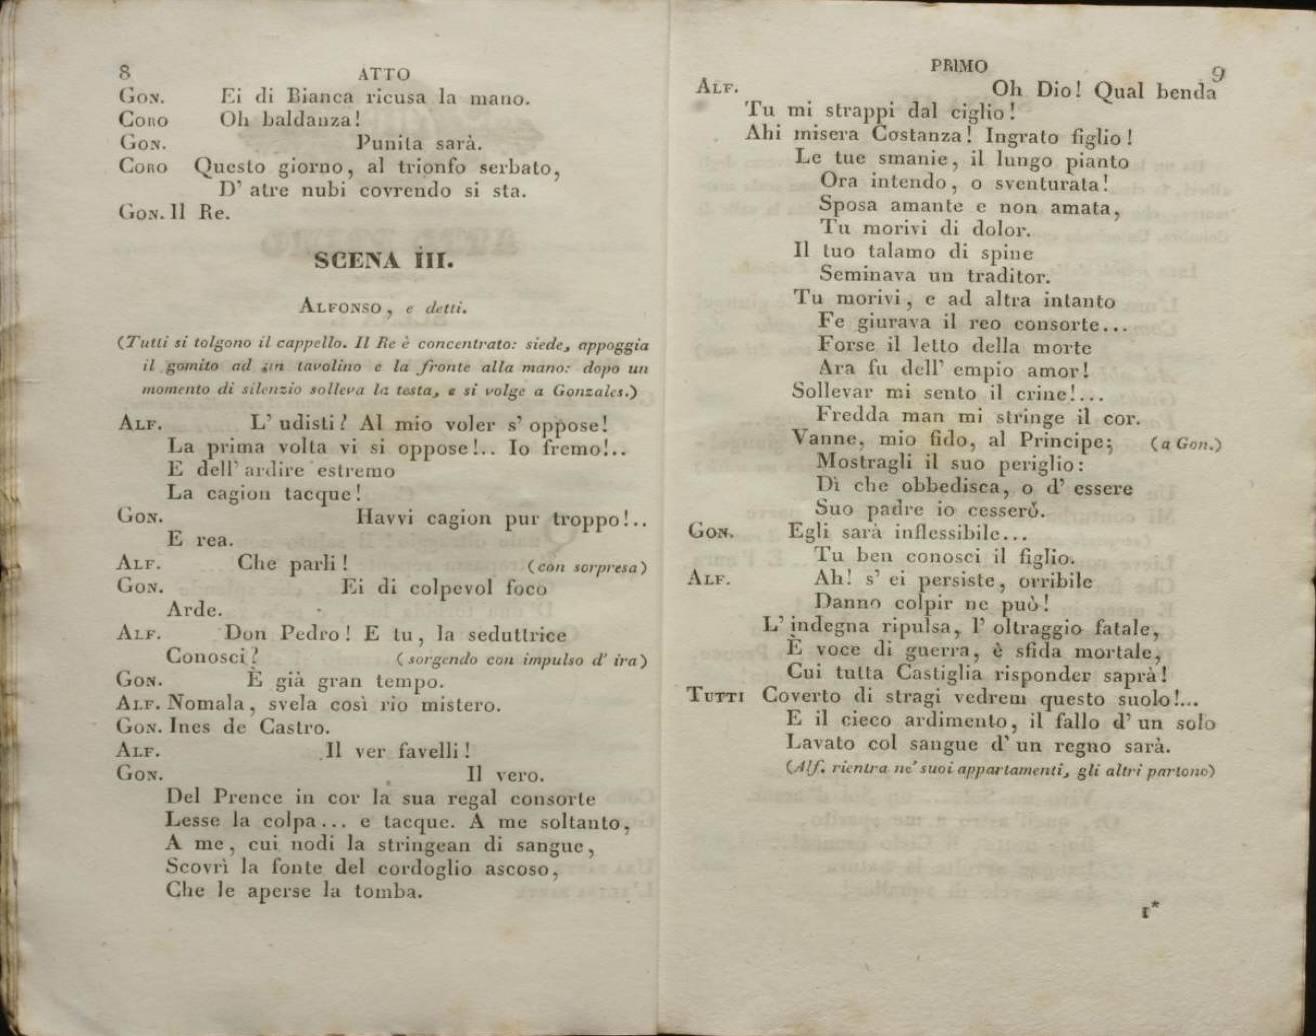 8 ATTO
GON. Ei di Bianca ricusa la mano.
CORO Oh baldanza!
GON. Punita sarà.
CORO Questo giorno, al trionfo serbato,
D' atre nubi covrendo si sta.
GON. Il Re.
SCENA III.
ALFONSO, e detti.
(Tutti si tolgono il cappello. Il Re è concentrato: siede, appoggia
il gomito ad un tavolino e la fronte alla mano: dopo un
momento di silenzio solleva la testa, e si volge a Gonzales.)
ALF. L' udisti? Al mio voler s' oppose!
La prima volta vi si oppose!.. Io fremo!..
E dell' ardire estremo
La cagion tacque!
GON. Havvi cagion pur troppo!..
E rea.
ALF. Che parli! (con sorpresa)
GON. Ei di colpevol foco
Arde.
ALF. Don Pedro! E tu, la seduttrice
Conosci? (sorgendo con impulso d' ira)
GON. È già gran tempo.
ALF. Nomala, svela così rio mistero.
GON. Ines de Castro.
ALF. Il ver favelli!
GON. Il vero.
Del Prence in cor la sua regal consorte
Lesse la colpa... e tacque. A me soltanto,
A me, cui nodi la stringean di sangue,
Scovrì la fonte del cordoglio ascoso,
Che le aperse la tomba.
PRIMO 9
ALF. Oh Dio! Qual benda
Tu mi strappi dal ciglio!
Ahi misera Costanza! Ingrato figlio!
Le tue smanie, il lungo pianto
Ora intendo, o sventurata!
Sposa amante e non amata,
Tu morivi di dolor.
Il tuo talamo di spine
Seminava un traditor.
Tu morivi, e ad altra intanto
Fe giurava il reo consorte...
Forse il letto della morte
Ara fu dell' empio amor!
Sollevar mi sento il crine!...
Fredda man mi stringe il cor.
Vanne, mio fido, al Principe; (a Gon.)
Mostragli il suo periglio:
Dì che obbedisca, o d' essere
Suo padre io cesserò.
GON. Egli sarà inflessibile...
Tu ben conosci il figlio.
ALF. Ah! s' ei persiste, orribile
Danno colpir ne può!
L' indegna ripulsa, l' oltraggio fatale,
È voce di guerra, è sfida mortale,
Cui tutta Castiglia risponder saprà!
TUTTI Coverto di stragi vedrem questo suolo!...
E il cieco ardimento, il fallo d' un solo
Lavato col sangue d' un regno sarà.
(Alf. rientra ne' suoi appartamenti, gli altri partono)
1*